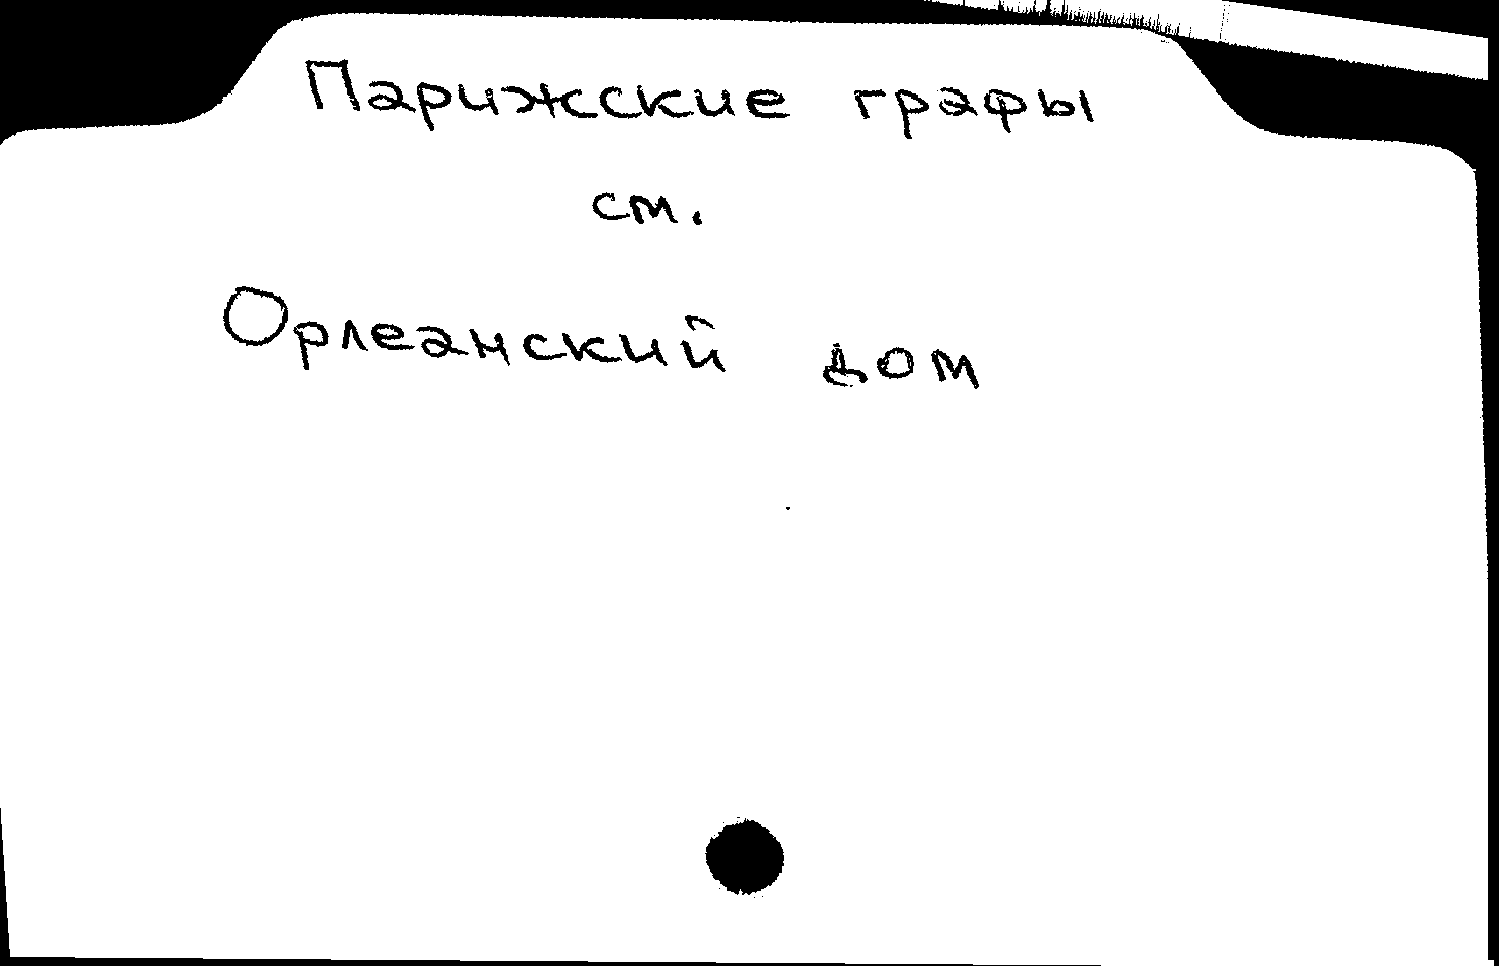 Парижские графы
см.
Орлеанский дом